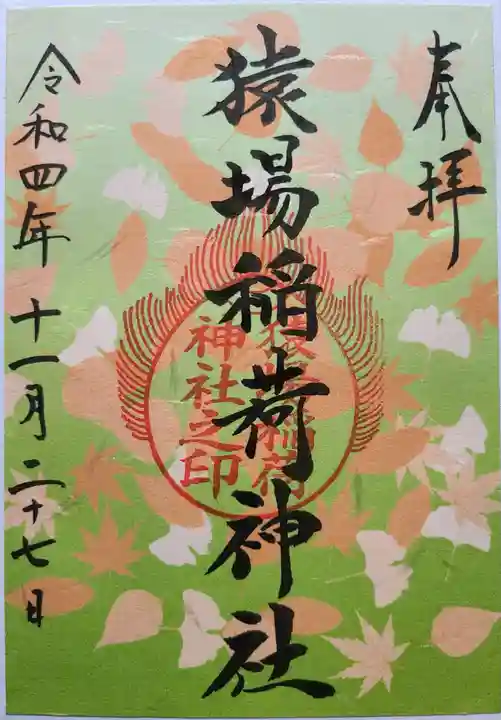 奉拝
猿場稲荷神社
猿場稲荷
神社之印
令和四年 十一月 二十七日